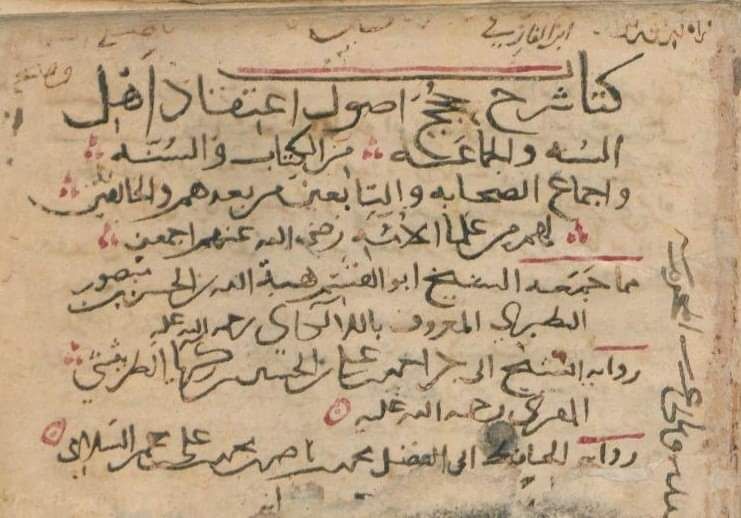 كتاب شرح حجج اصول اعتقاد اهل
السنه والجماعه من الكتاب والسنه
واجماع الصحابه والتابعين من بعدهم والخالفين
لهم من علما الأئمه رضي الله عنهم اجمعين
مما جمعه الشيخ ابو القسم هبة الله بن الحسن بن منصور
الطبري المعروف باللالكاي رحمه الله عليه
روايه الشيخ ابي بكر احمد بن علي بن الحسين بن زكريا الطريثيثي
المقري رحمه الله عليه
روايه الحافظ ابي الفضل محمد بن ناصر بن محمد بن علي بن عمر السلامي